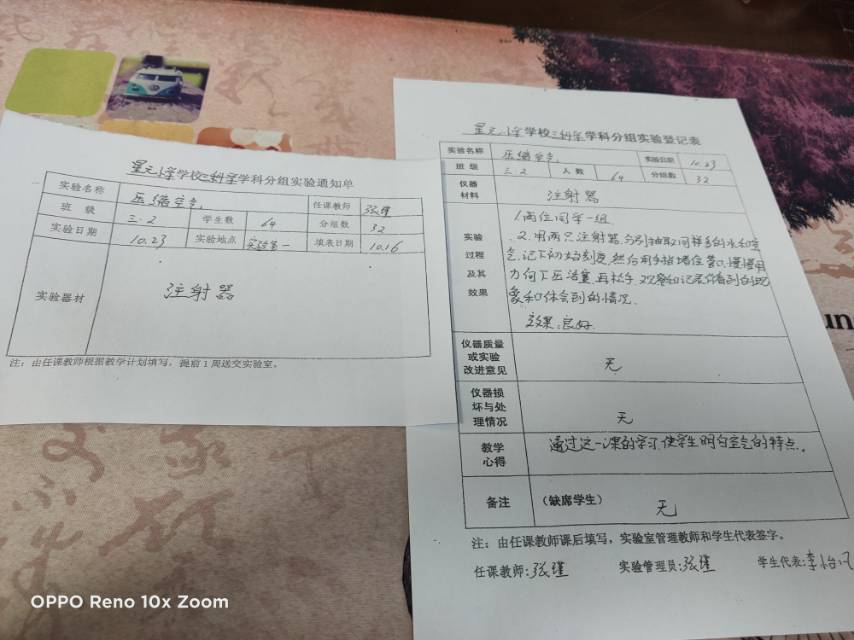 星元小学学校三科学学科分组实验通知单
实验名称 压缩空气 任课教师 张瑾
班 级 三.2 学生数 64 分组数 32
实验日期 10.23 实验地点 实验室一 填表日期 10.16
实验器材 注射器
注：由任课教师根据教学计划填写，提前1周送交实验室。
星元小学学校三科学学科分组实验登记表
实验名称 压缩空气 实验日期 10.23
班 级 三.2 人 数 64 分组数 32
仪器
材料
注射器
实验
过程
及其
效果
1.两位同学一组
2.用两只注射器,分别抽取同样多的水和空
气,记下初始刻度,然后用手指堵住管口,慢慢用
力向下压活塞,再松手,观察和记录你看到的现
象和体会到的情况.
效果:良好.
仪器质量
或实验
改进意见
无
仪器损
坏与处
理情况
无
教学
心得
通过这一课的学习,使学生明白空气的特点。
备注 （缺席学生） 无
注：由任课教师课后填写，实验室管理教师和学生代表签字。
任课教师:张瑾 实验管理员:张瑾 学生代表:李怡
un
OPPO Reno 10x Zoom